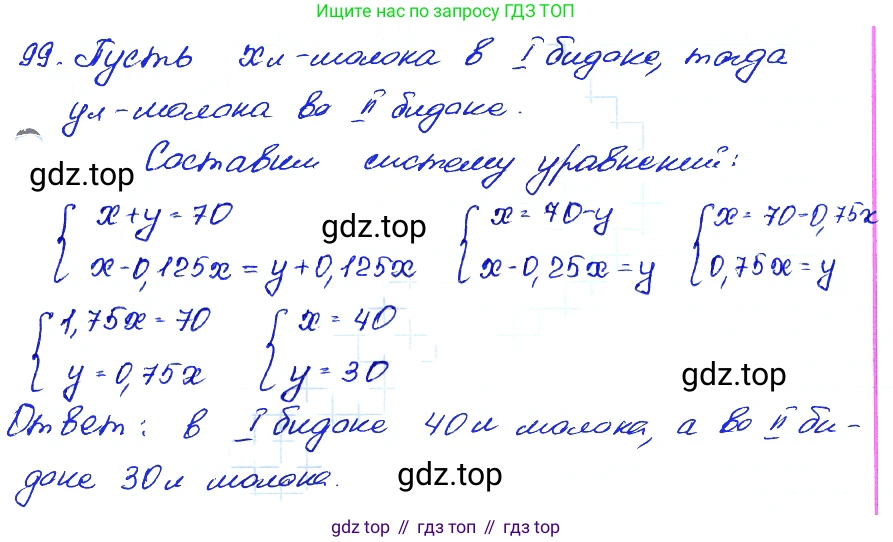 Ищите нас по запросу ГДЗ ТОП
99. Пусть x л - молока в I бидоне, тогда
y л - молока во II бидоне.
Составим систему уравнений:
gdz.top
{ x + y = 70 { x = 70 - y { x = 70 - 0,75x
gdz.top
x - 0,125x = y + 0,125x x - 0,25x = y 0,75x = y
{ 1,75x = 70 { x = 40
y = 0,75x y = 30
gdz.top
Ответ: в I бидоне 40 л молока, а во II би-
доне 30 л молока.
gdz.top
gdz top // гдз топ // gdz top